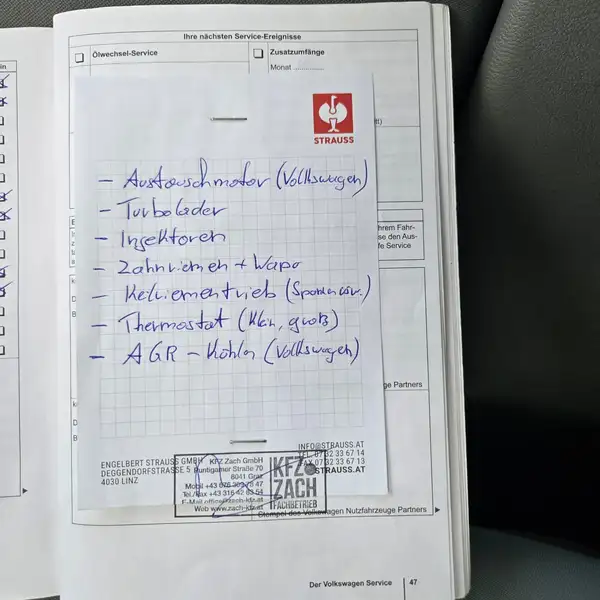 in
Ihre nächsten Service-Ereignisse
Ölwechsel-Service
Zusatzumfänge
Monat ..............
STRAUSS
– Austauschmotor (Volkswagen)
– Turbolader
– Injektoren
– Zahnriemen + Wapu
– Keilriementrieb
– Thermostat (klein, groß)
– AGR – Kühler (Volkswagen)
hrem Fahr-
se den Aus-
fe Service
ge Partners
ENGELBERT STRAUSS GMBH
DEGGENDORFSTRASSE 5
4030 LINZ
INFO@STRAUSS.AT
TEL. 07 32 33 67 14
FAX 07 32 33 67 13
STRAUSS.AT
KFZ Zach GmbH
Puntigamer Straße 70
8041 Graz
Web www.zach-kfz.at
KFZ
ZACH
FACHBETRIEB
Stempel des Volkswagen Nutzfahrzeuge Partners
Der Volkswagen Service
47